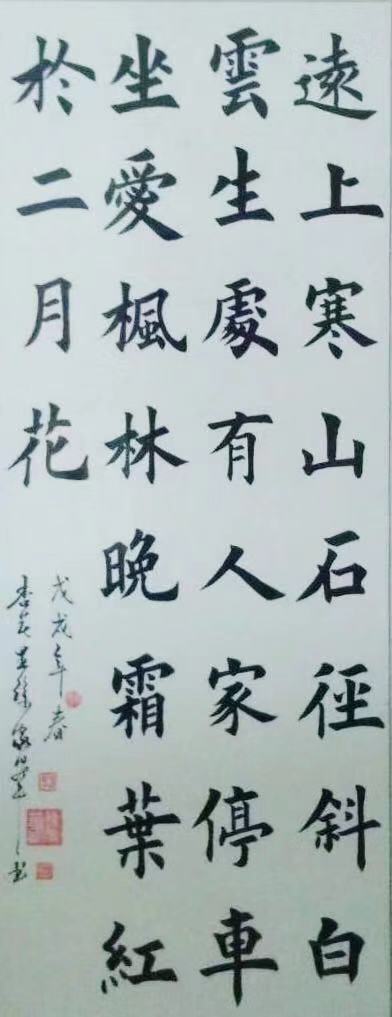 遠上寒山石徑斜白
雲生處有人家停車
坐愛楓林晚霜葉紅
於二月花
戊戌年春